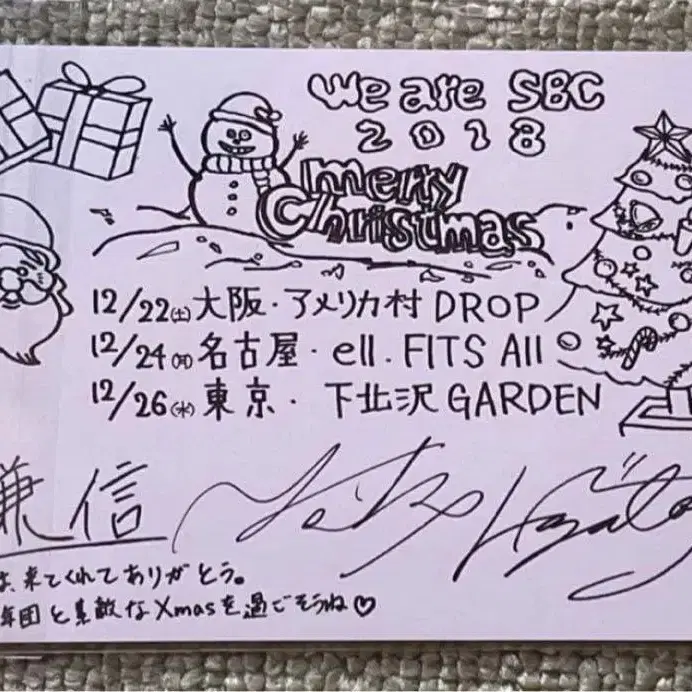 We are SBC
2018
merry
Christmas
12/22(土) 大阪・アメリカ村 DROP
12/24(月) 名古屋・ell.FITS All
12/26(水) 東京・下北沢 GARDEN
謙信
来てくれてありがとう。
年団と素敵なXmasを過ごそうね♡